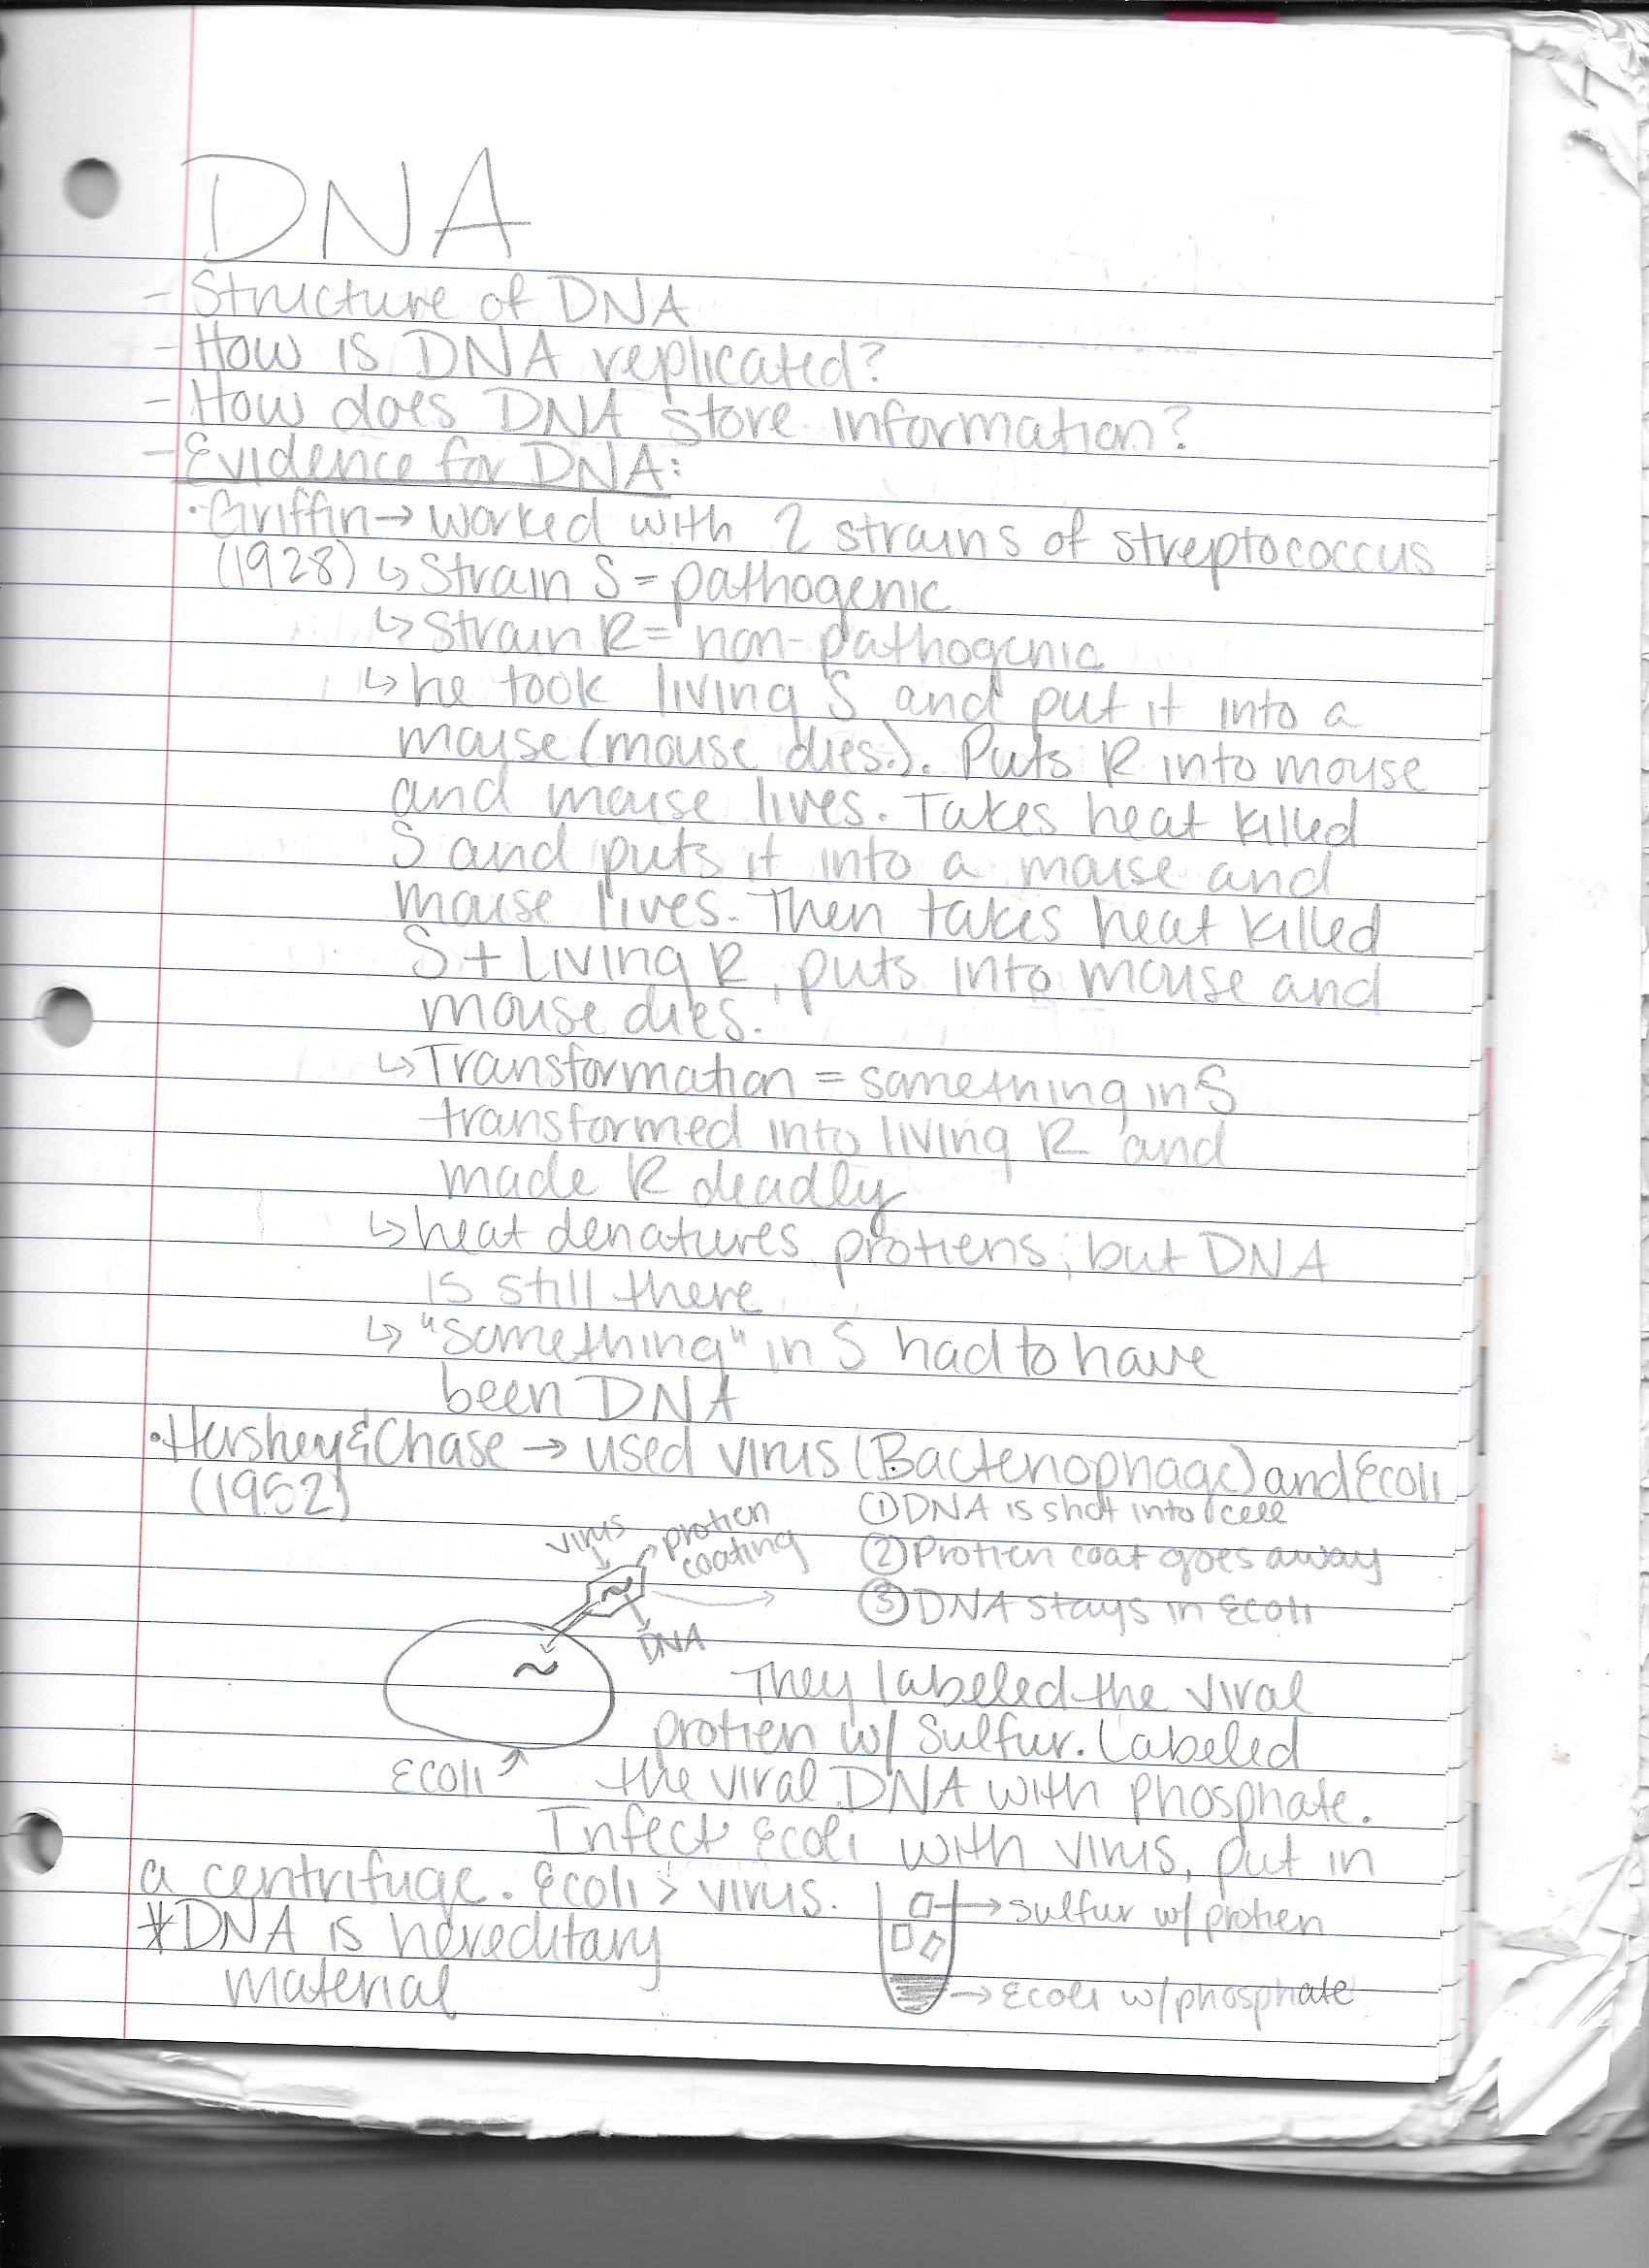 DNA
- Structure of DNA
- How is DNA replicated?
- How does DNA store information?
- Evidence for DNA:
• Griffin → worked with 2 strains of streptococcus
(1928) ↳ Strain S = pathogenic
↳ Strain R = non-pathogenic
↳ he took living S and put it into a
mouse (mouse dies.). Puts R into mouse
and mouse lives. Takes heat killed
S and puts it into a mouse and
mouse lives. Then takes heat killed
S + Living R, puts into mouse and
mouse dies.
↳ Transformation = something in S
transformed into living R and
made R deadly
↳ heat denatures protiens, but DNA
is still there
↳ "something" in S had to have
been DNA
• Hershey & Chase → used virus (Bacteriophage) and Ecoli
(1952)
① DNA is shot into cell
virus
protien
coating
② Protien coat goes away
③ DNA stays in Ecoli
DNA
They labeled the viral
protien w/ Sulfur. Labeled
Ecoli
the viral DNA with phosphate.
Infect Ecoli with virus, put in
a centrifuge. Ecoli > virus.
→ sulfur w/ protien
* DNA is hereditary
material
→ Ecoli w/ phosphate